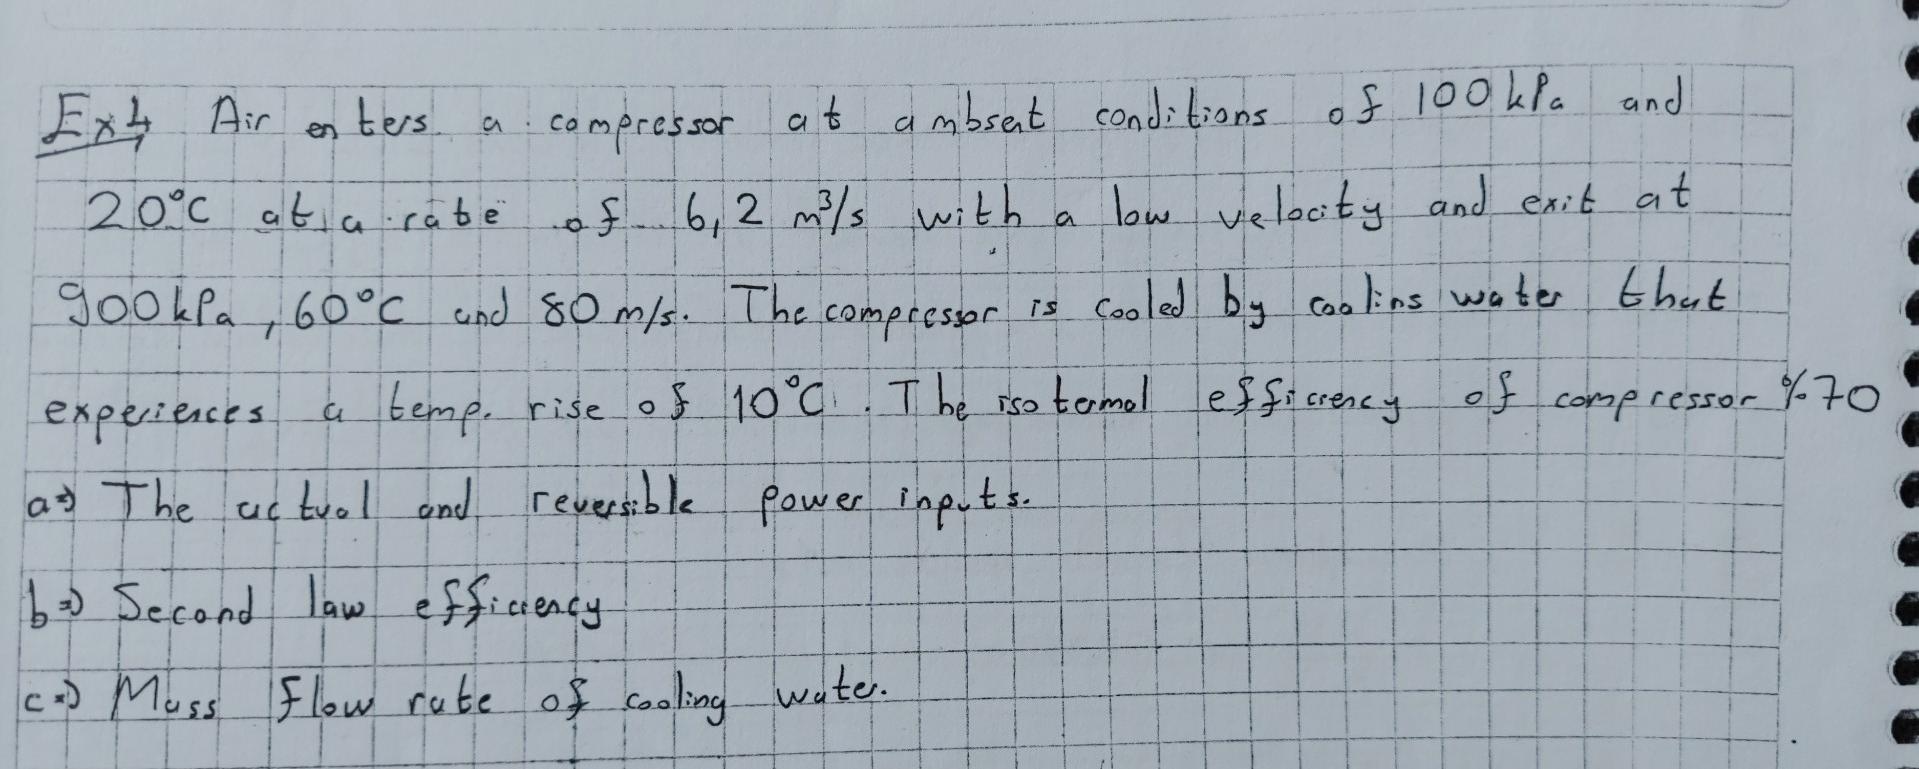 Ex4 Air enters a compressor at ambient conditions of 100 kPa and
20°C at a rate of 6,2 m³/s with a low velocity and exit at
900kPa, 60°C and 80 m/s. The compressor is cooled by coolins water that
experiences a temp. rise of 10°C. The isotermal efficiency of compressor %70
a⇒) The actual and reversible power inputs.
b⇒) Second law efficiency
c⇒) Mass flow rate of cooling water.